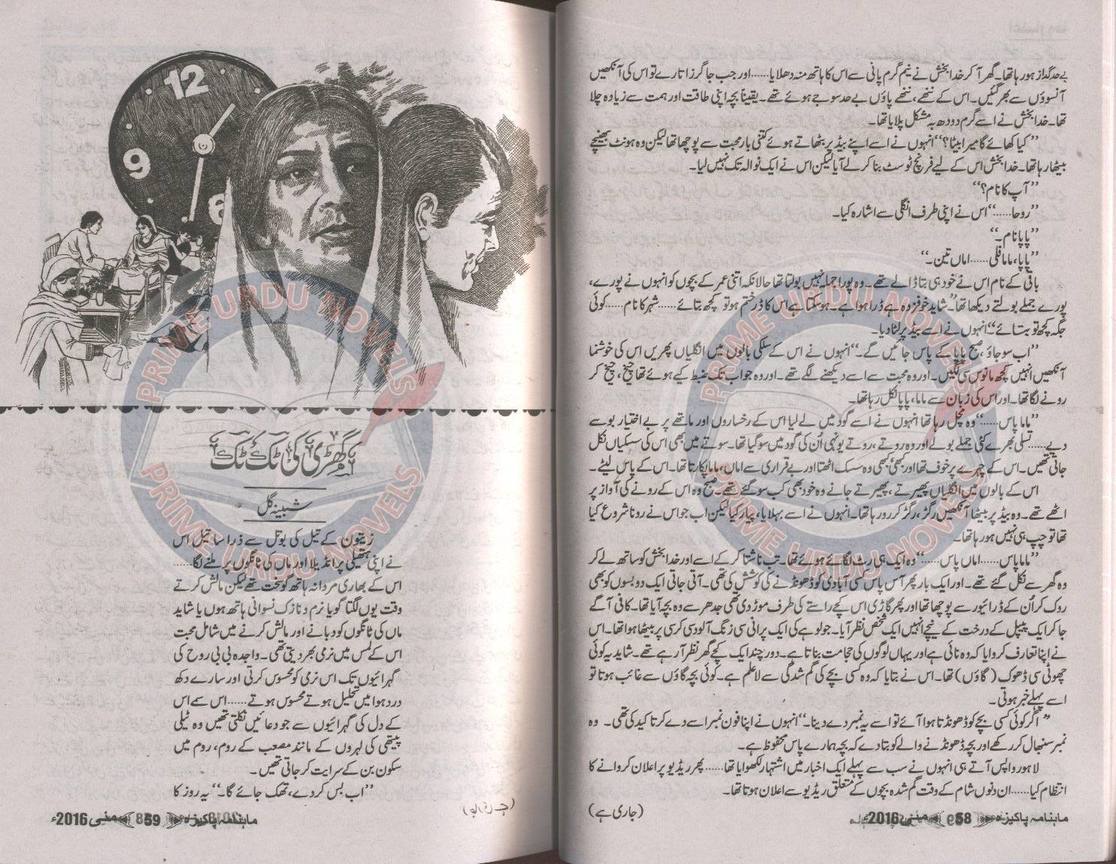 بے حد گداز ہو رہا تھا۔ گھر آ کر خدا بخش نے نیم گرم پانی سے اس کا ہاتھ منہ دھلایا......اور جب جاگرز اتارے تو اس کی آنکھیں
آنسوؤں سے بھر گئیں۔ اس کے ننھے، ننھے پاؤں بے حد سوجے ہوئے تھے۔ یقیناً بچہ اپنی طاقت اور ہمت سے زیادہ چلا
تھا۔ خدا بخش نے اسے گرم دودھ بہ مشکل پلایا تھا۔
”کیا کھائے گا میرا بیٹا؟“ انہوں نے اسے اپنے بیڈ پر بٹھاتے ہوئے کتنی بار محبت سے پوچھا تھا لیکن وہ ہونٹ بھینچے
بیٹھا رہا تھا۔ خدا بخش اس کے لیے فرنچ ٹوسٹ بنا کر لے آیا لیکن اس نے ایک نوالہ تک نہیں لیا۔
”آپ کا نام؟“
”روحا......“ اس نے اپنی طرف انگلی سے اشارہ کیا۔
”پاپا نام۔“
”پاپا، ماما فلی......اماں تین۔“
باقی کے نام اس نے خود ہی بتا ڈالے تھے۔ وہ پورا جملہ نہیں بولتا تھا حالانکہ اتنی عمر کے بچوں کو انہوں نے پورے،
پورے جملے بولتے دیکھا تھا۔ ”شاید خوفزدہ ہے ڈرا ہوا ہے۔ ہو سکتا ہے اس کا ڈر ختم ہو تو کچھ بتائے......شہر کا نام......کوئی
جگہ کچھ تو بتائے“ انہوں نے اسے بیڈ پر لٹا دیا۔
”اب سو جاؤ، صبح پاپا کے پاس جائیں گے۔“ انہوں نے اس کے سلکی بالوں میں انگلیاں پھریں اس کی خوشنما
آنکھیں انہیں کچھ مانوس سی لگیں۔ اور وہ محبت سے اسے دیکھنے لگے تھے۔ اور وہ جو اب تک ضبط کیے ہوئے تھا چیخ، چیخ کر
رونے لگا تھا۔ اور اس کی زبان سے ماما، پاپا نکل رہا تھا۔
”ماما پاس......“ وہ مچل رہا تھا انہوں نے اسے گود میں لے لیا اس کے رخساروں اور ماتھے پر بے اختیار بوسے
دیے......تسلی بھرے کئی جملے بولے اور وہ روتے، روتے یونہی اُن کی گود میں سو گیا تھا۔ سوتے میں بھی اس کی سسکیاں نکل
جاتی تھیں۔ اس کے چہرے پر خوف تھا اور کبھی کبھی وہ سسک اٹھتا اور بے قراری سے اماں، ماما پکارتا تھا۔ اس کے پاس لیٹے۔
اس کے بالوں میں انگلیاں پھیرتے، پھیرتے جانے وہ خود بھی کب سو گئے تھے۔ صبح وہ اس کے رونے کی آواز پر
اٹھے تھے۔ وہ بیڈ پر بیٹھا آنکھیں رگڑ، رگڑ کر رو رہا تھا۔ انہوں نے اسے بہلایا، پیار کیا لیکن اب جو اس نے رونا شروع کیا
تھا تو چپ ہی نہیں ہو رہا تھا۔
”ماما پاس......اماں پاس......“ وہ ایک ہی رٹ لگائے ہوئے تھا۔ تب ناشتا کر کے اسے اور خدا بخش کو ساتھ لے کر
وہ گھر سے نکل گئے تھے۔ اور ایک بار پھر آس پاس کسی آبادی کو ڈھونڈنے کی کوشش کی تھی۔ آتی جاتی ایک دو بسوں کو بھی
روک کر ان کے ڈرائیور سے پوچھا تھا اور پھر گاڑی اس کچے راستے کی طرف موڑ دی تھی جدھر سے وہ بچہ آیا تھا۔ کافی آگے
جا کر ایک پیپل کے درخت کے نیچے انہیں ایک شخص نظر آیا۔ جو لوہے کی ایک پرانی سی زنگ آلود سی کرسی پر بیٹھا ہوا تھا۔ اس
نے اپنا تعارف کروایا کہ وہ نائی ہے اور یہاں لوگوں کی حجامت بناتا ہے۔ دور چند ایک کچے گھر نظر آ رہے تھے۔ شاید یہ کوئی
چھوٹی سی ڈھوک (گاؤں) تھا۔ اس نے بتایا کہ وہ کسی بچے کی گم شدگی سے لاعلم ہے۔ کوئی بچہ گاؤں سے غائب ہوتا تو
اسے پہلے خبر ہوتی۔
”اگر کوئی کسی بچے کو ڈھونڈتا ہوا آئے تو اسے یہ نمبر دے دینا۔“ انہوں نے اپنا فون نمبر اسے دے کر تاکید کی تھی۔ وہ
نمبر سنبھال کر رکھے اور بچہ ڈھونڈنے والے کو بتا دے کہ بچہ ہمارے پاس محفوظ ہے۔
لاہور واپس آتے ہی انہوں نے سب سے پہلے ایک اخبار میں اشتہار لکھوایا تھا......پھر ریڈیو پر اعلان کروانے کا
انتظام کیا......ان دنوں شام کے وقت گم شدہ بچوں کے متعلق ریڈیو سے اعلان ہوتا تھا۔
(جاری ہے)
ماہنامہ پاکیزہ 58 مئی 2016ء
12
9
6
گھڑی کی ٹک ٹک
شبینہ گل
زیتون کے تیل کی بوتل سے ذرا سا تیل اس
نے اپنی ہتھیلی پر انڈیلا اور ماں کی ٹانگوں پر ملنے لگا......
اس کے بھاری مردانہ ہاتھ گو سخت تھے لیکن مالش کرتے
وقت یوں لگتا گویا نرم و نازک نسوانی ہاتھ ہوں یا شاید
ماں کی ٹانگوں کو دبانے اور مالش کرنے میں شامل محبت
اس کے لمس میں نرمی بھر دیتی تھی۔ واجدہ بی بی روح کی
گہرائیوں تک اس نرمی کو محسوس کرتی اور سارے دکھ
درد ہوا میں تحلیل ہوتے محسوس ہوتے......اس سے اس
کے دل کی گہرائیوں سے جو دعائیں نکلتی تھیں وہ ٹیلی
پیتھی کی لہروں کے مانند مصعب کے روم، روم میں
سکون بن کے سرایت کر جاتی تھیں۔
”اب بس کر دے، تھک جائے گا۔“ یہ روز کا
ماہنامہ پاکیزہ 59 مئی 2016ء
PRIME URDU NOVELS
PRIME URDU NOVELS
PRIME URDU NOVELS
PRIME URDU NOVELS